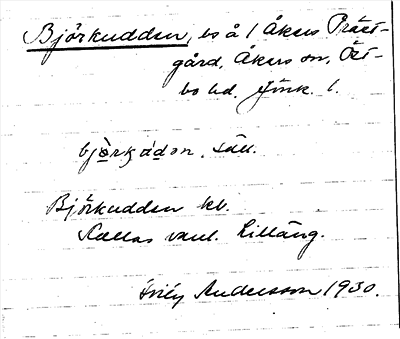 Björkudden, bs å 1 Åkers Präst-
gård, Åkers sn, Öst-
bo hd. Jönk. l.
bjö̀rkúdən. säll.
Björkudden kl.
Kallas vanl. Lilläng.
Andersson 1930.